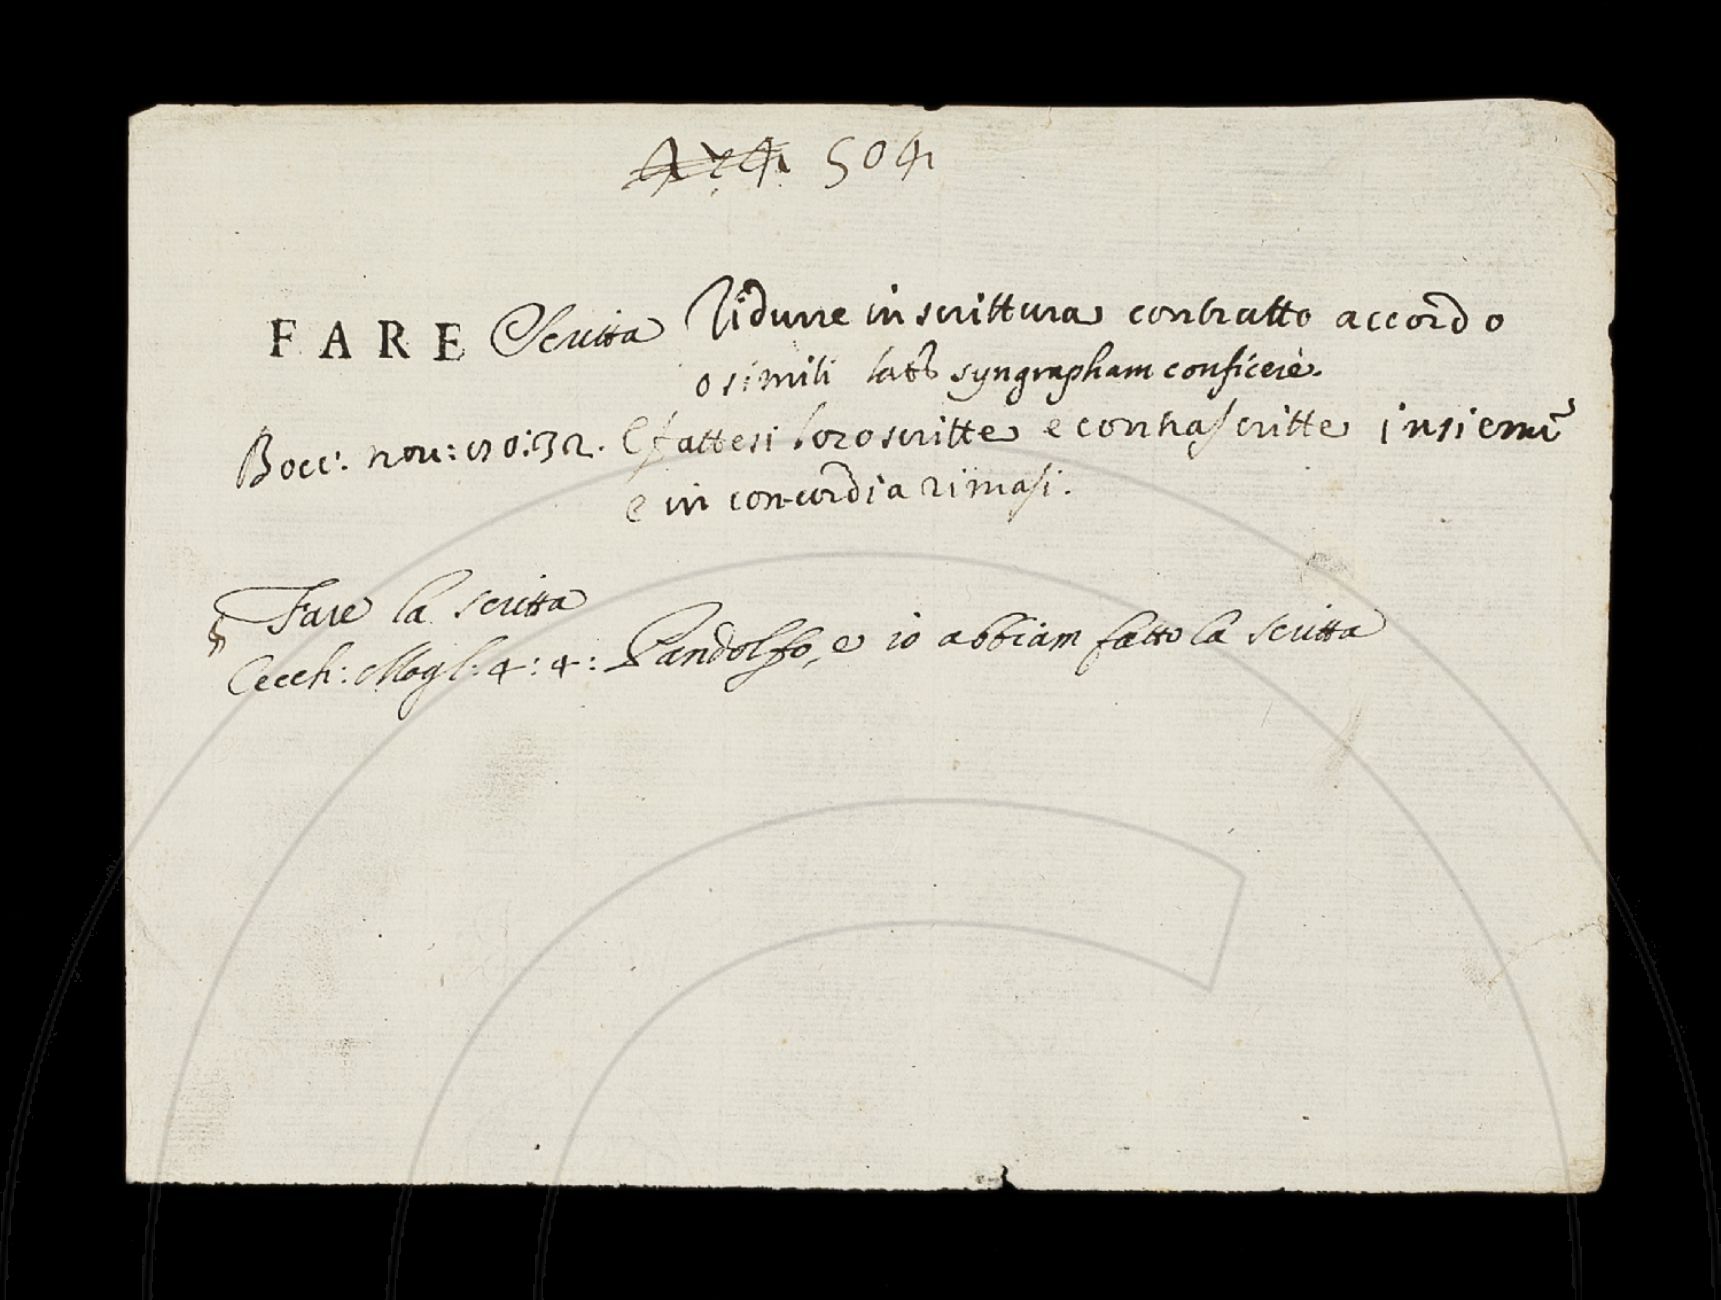 504
FARE Scritta Ridurre in scrittura contratto accordo
o simili latt syngrapham conficere.
Bocc: nov: 80:32. E fattesi loro scritte e contrascritte insieme
e in concordia rimasi.
Fare la scritta
Cecch: Mogl: 4: 4: Pandolfo, e io abbiam fatto la scritta